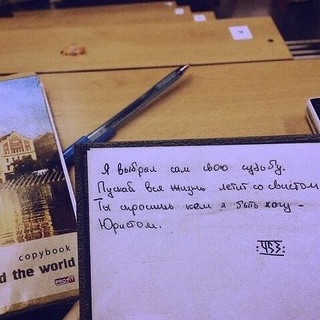 Я выбрал сам свою судьбу.
Пускай вся жизнь летит со свистом
Ты спросишь кем я быть хочу -
Юристом.
copybook
d the world